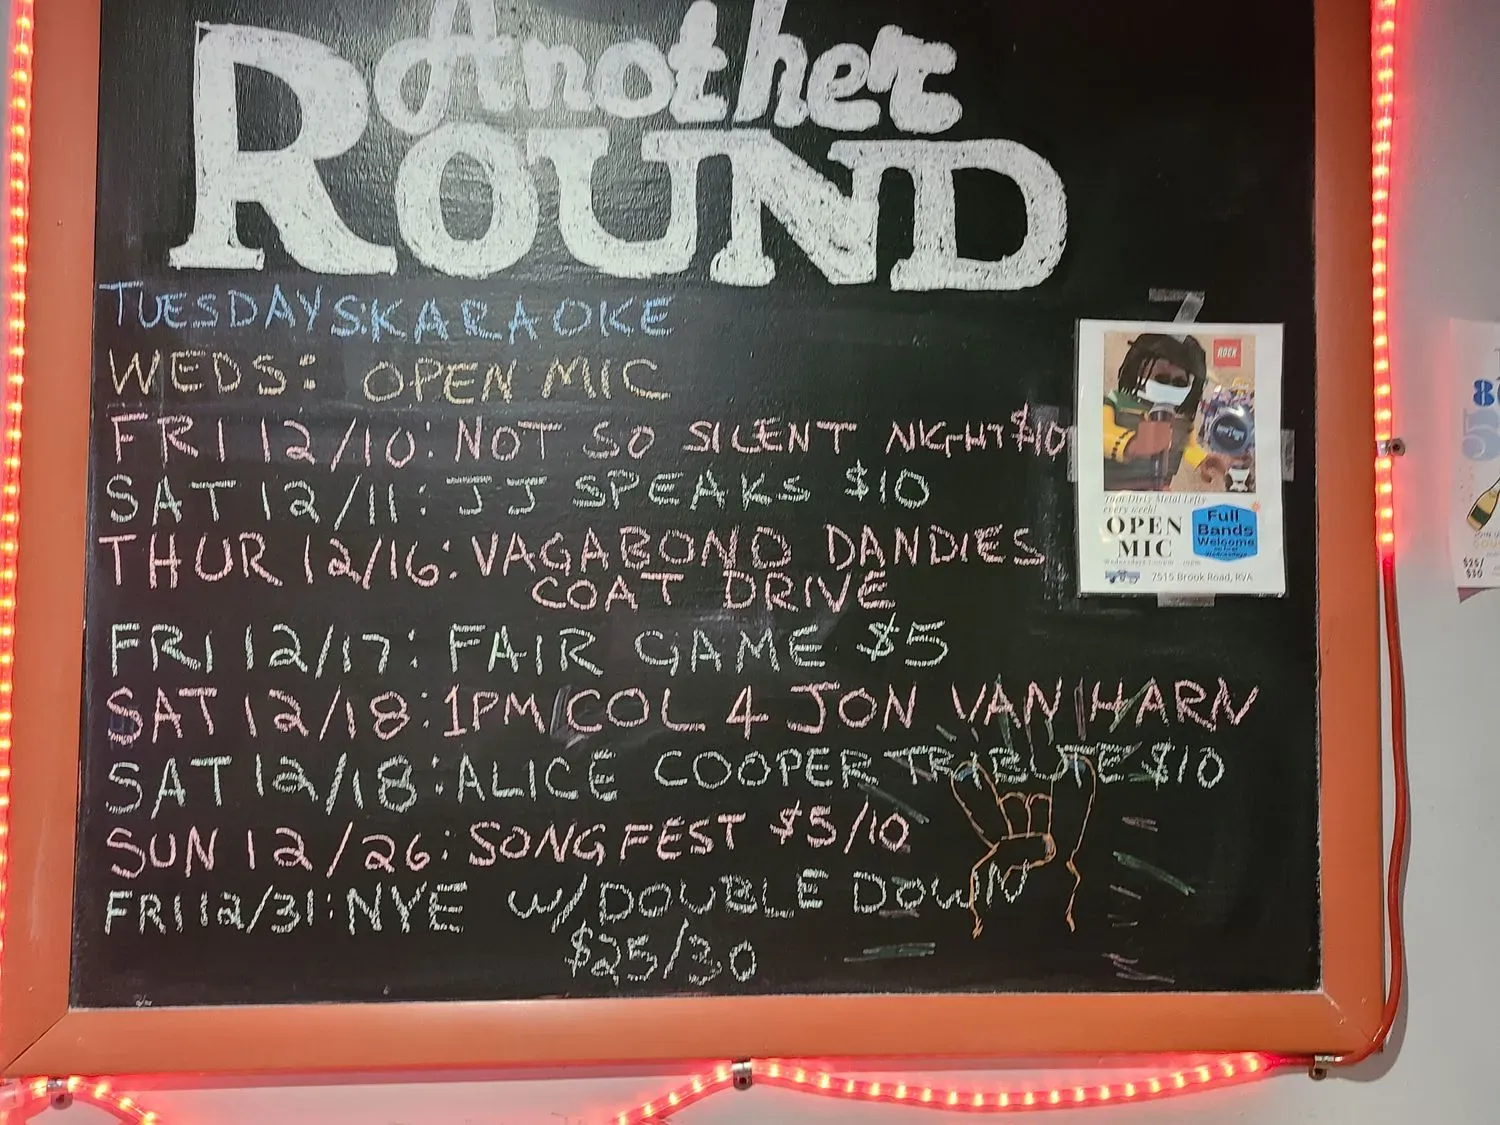 Another
ROUND
TUESDAYS KARAOKE
WEDS: OPEN MIC
FRI 12/10: NOT SO SILENT NIGHT $10
SAT 12/11: JJ SPEAKS $10
THUR 12/16: VAGABOND DANDIES
COAT DRIVE
FRI 12/17: FAIR GAME $5
SAT 12/18: 1PM COL 4 JON VAN HARN
SAT 12/18: ALICE COOPER TRIBUTE $10
SUN 12/26: SONGFEST $5/10
FRI 12/31: NYE W/ DOUBLE DOWN
$25/30
ROCK
Dirty Metal Lefty
every week!
OPEN
MIC
Full
Bands
Welcome
7515 Brook Road, RVA
$25/
$30